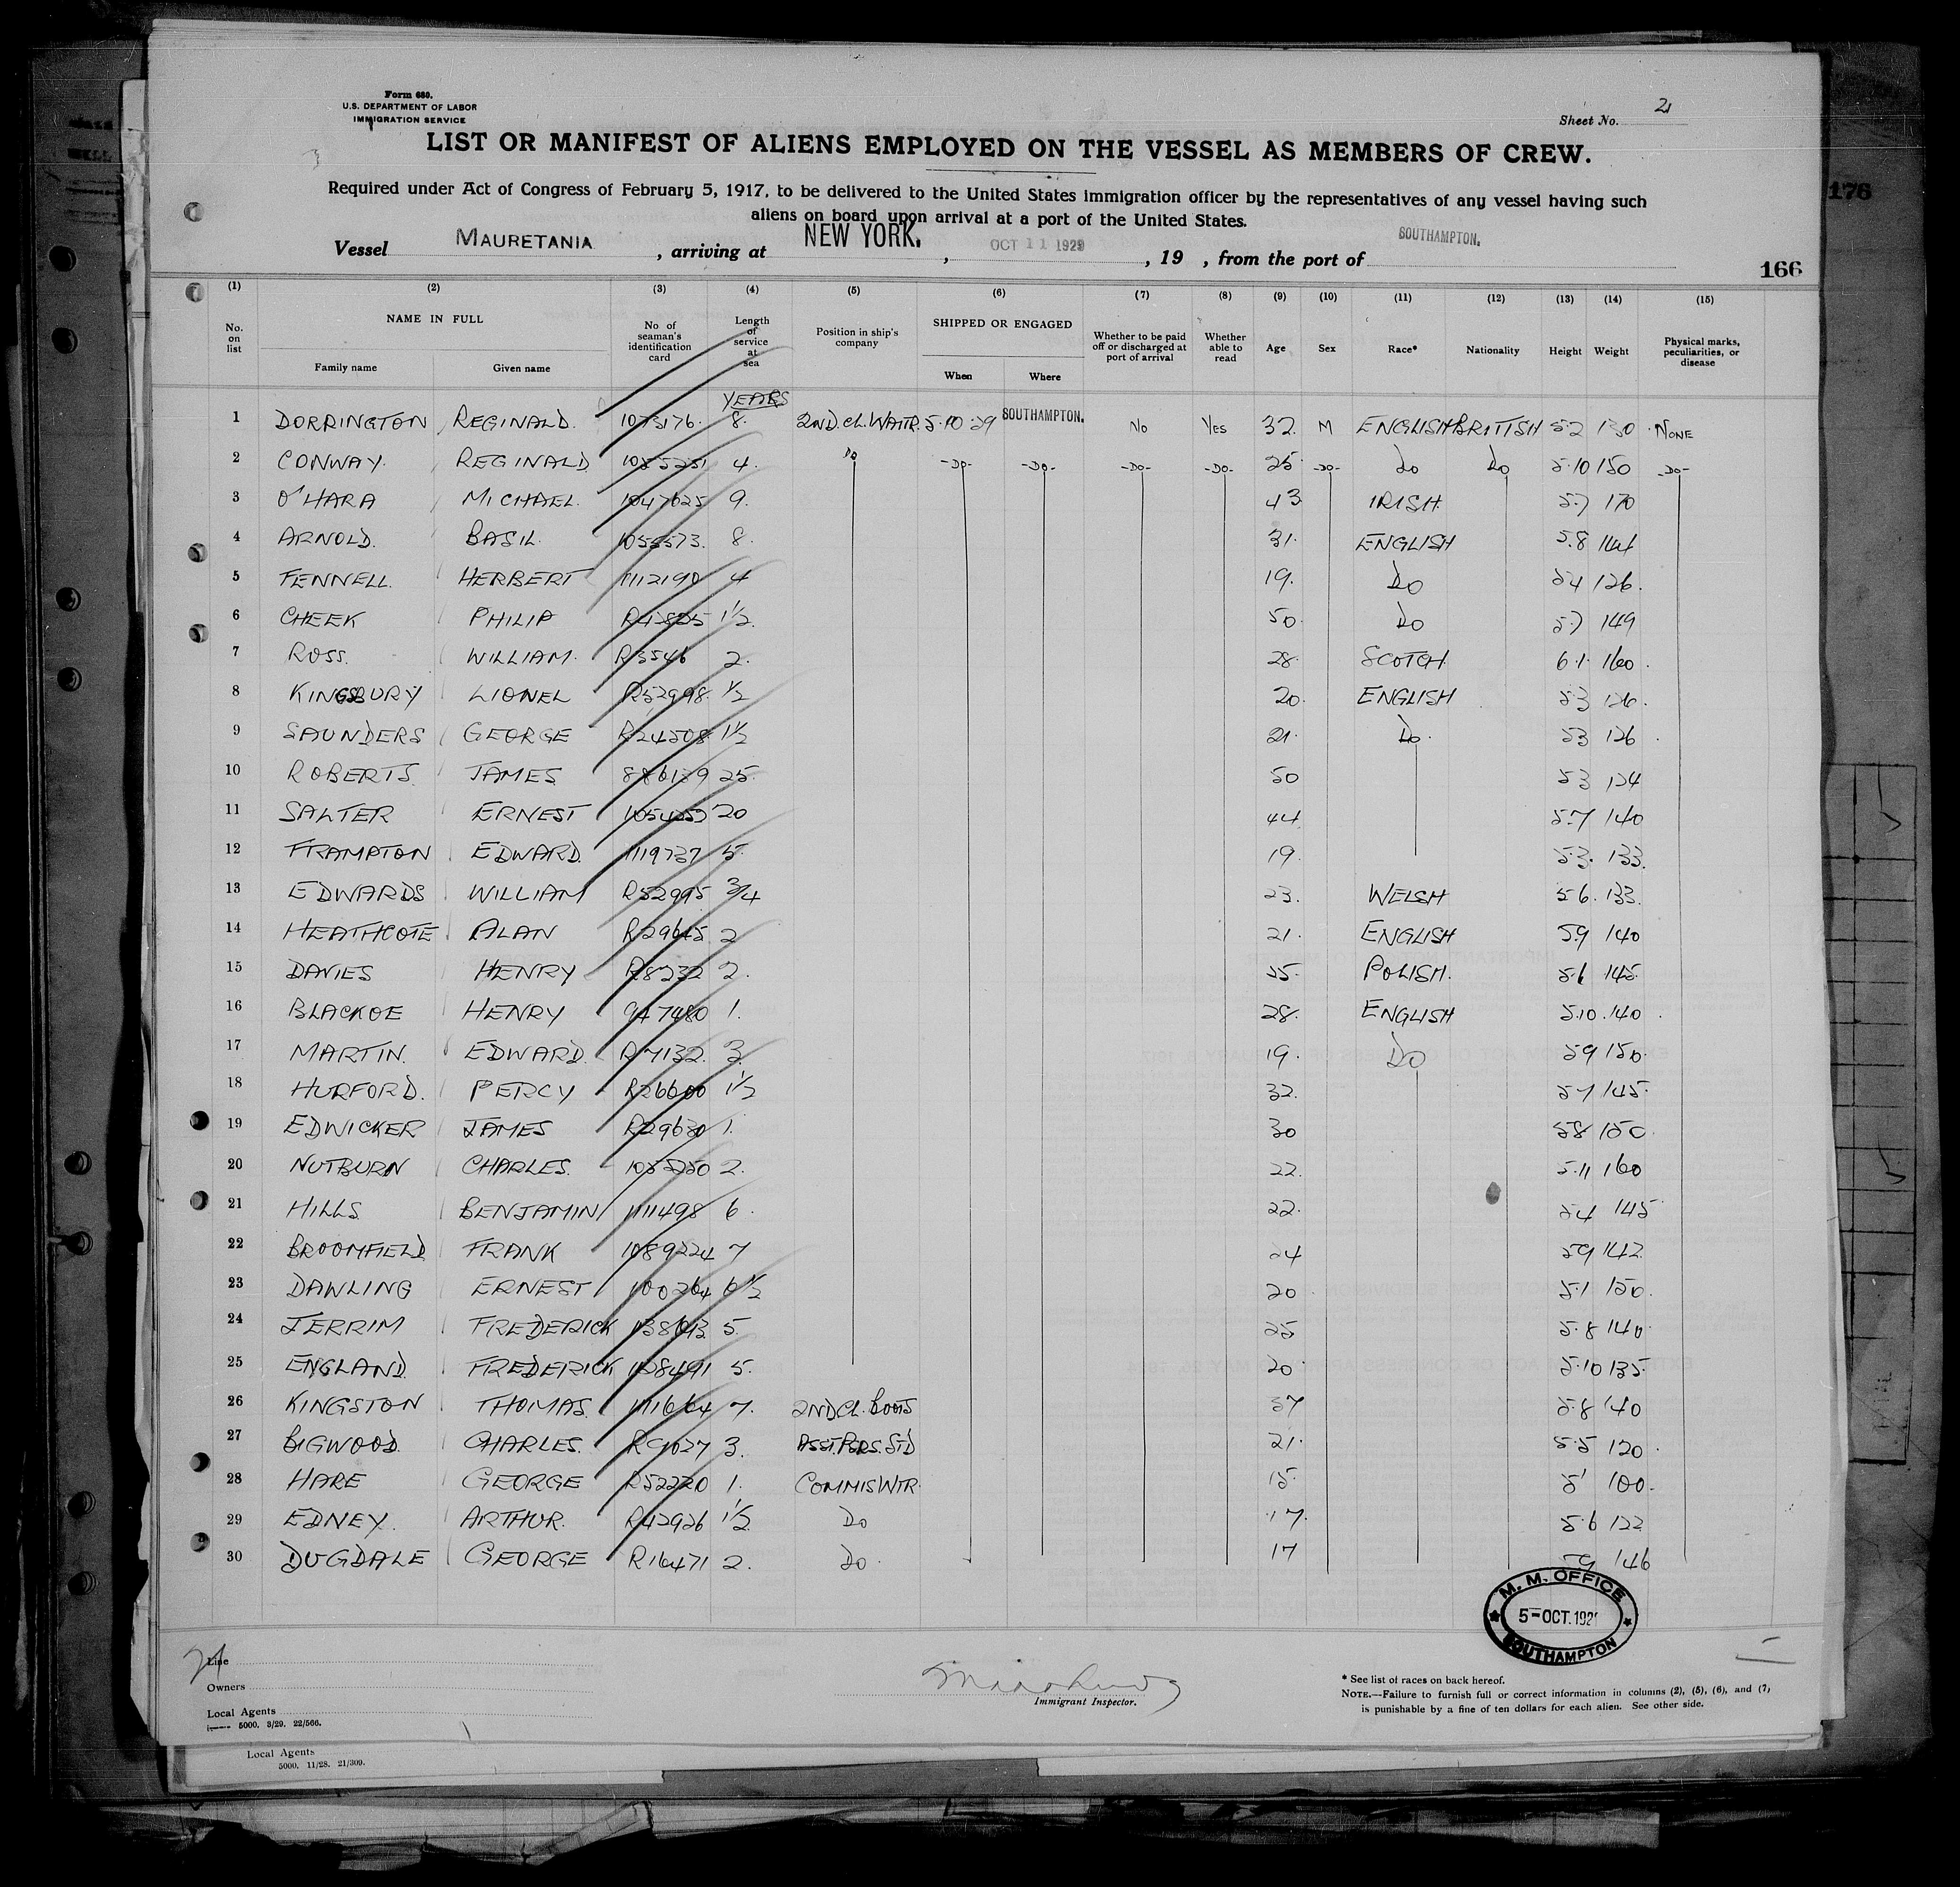 Form 680.
U.S. DEPARTMENT OF LABOR
IMMIGRATION SERVICE
Sheet No. 21
LIST OR MANIFEST OF ALIENS EMPLOYED ON THE VESSEL AS MEMBERS OF CREW.
Required under Act of Congress of February 5, 1917, to be delivered to the United States immigration officer by the representatives of any vessel having such
aliens on board upon arrival at a port of the United States.
176
Vessel MAURETANIA, arriving at NEW YORK., OCT 11 1929, 19 , from the port of SOUTHAMPTON.
166
(1) (2) (3) (4) (5) (6) (7) (8) (9) (10) (11) (12) (13) (14) (15)
No. on list NAME IN FULL Family name Given name No of seaman's identification card Length of service at sea Position in ship's company SHIPPED OR ENGAGED When Where Whether to be paid off or discharged at port of arrival Whether able to read Age Sex Race* Nationality Height Weight Physical marks, peculiarities, or disease
YEARS
1 DORRINGTON REGINALD. 1073176. 8. 2ND.CL.WAITR. 5.10 29 SOUTHAMPTON. No Yes 32. M ENGLISH BRITISH 5.2 130 NONE
2 CONWAY. REGINALD 4. DO -DO- -DO- -DO- -DO- 25. -DO- do Do 5.10 150 -DO-
3 O'HARA MICHAEL. 1047625 9. 43 IRISH. 5.7 170
4 ARNOLD. BASIL. 8. 31. ENGLISH 5.8 144
5 FENNELL. HERBERT 1112190 4 19. Do 5.4 126.
6 CHEEK PHILIP 1/2. 50. Do 5.7 149
7 ROSS. WILLIAM. R3546 2. 28. SCOTCH 6.1. 160.
8 KINGSBURY LIONEL R52998. 1/2 20. ENGLISH 5.3 126.
9 SAUNDERS GEORGE R24508. 1 1/2 21. Do. 5.3 126.
10 ROBERTS. JAMES 886139 25. 50 5.3 134
11 SALTER ERNEST 20 44 5.7 140
12 FRAMPTON EDWARD. 1119737 5. 19. 5.3. 133.
13 EDWARDS WILLIAM R52995 3/4 23. WELSH 5.6. 133.
14 HEATHCOTE ALAN R29645 2 21. ENGLISH 5.9 140
15 DAVIES HENRY R8232 2. POLISH. 5.6 145.
16 BLACKOE HENRY 947480 1. 28. ENGLISH 5.10. 140.
17 MARTIN. EDWARD. R7132. 3. 19. Do 5.9 150.
18 HURFORD. PERCY R26600 1 1/2 32. 5.7 145.
19 EDWICKER JAMES R29630 1. 30 5.8 150.
20 NUTBURN CHARLES. 2. 22. 5.11 160
21 HILLS. BENJAMIN 1111498 6. 22. 5.4 145
22 BROOMFIELD FRANK 1089224 7 24 5.9 142.
23 DAWLING ERNEST 6 1/2 20 5.1 150.
24 JERRIM FREDERICK 5. 25 5.8 140.
25 ENGLAND. FREDERICK 1128491 5. 20. 5.10 135.
26 KINGSTON THOMAS. 1111664 7. 2ND CL. BOOTS 37 5.8 140
27 BIGWOOD. CHARLES. R9027 3. ASST.PSRS.STD 21. 5.5 120.
28 HARE GEORGE R52220 1. COMMIS WTR. 15. 5' 100.
29 EDNEY. ARTHUR. R42926 1/2 Do 17. 5.6 122
30 DUGDALE GEORGE R16471 2. Do. 17 5.9 146
M. M. OFFICE
5-OCT.192
SOUTHAMPTON
Line
Owners
Local Agents
5000. 3/29. 22/566.
Immigrant Inspector.
* See list of races on back hereof.
NOTE.—Failure to furnish full or correct information in columns (2), (5), (6), and (7)
is punishable by a fine of ten dollars for each alien. See other side.
Local Agents
5000. 11/28. 21/309.